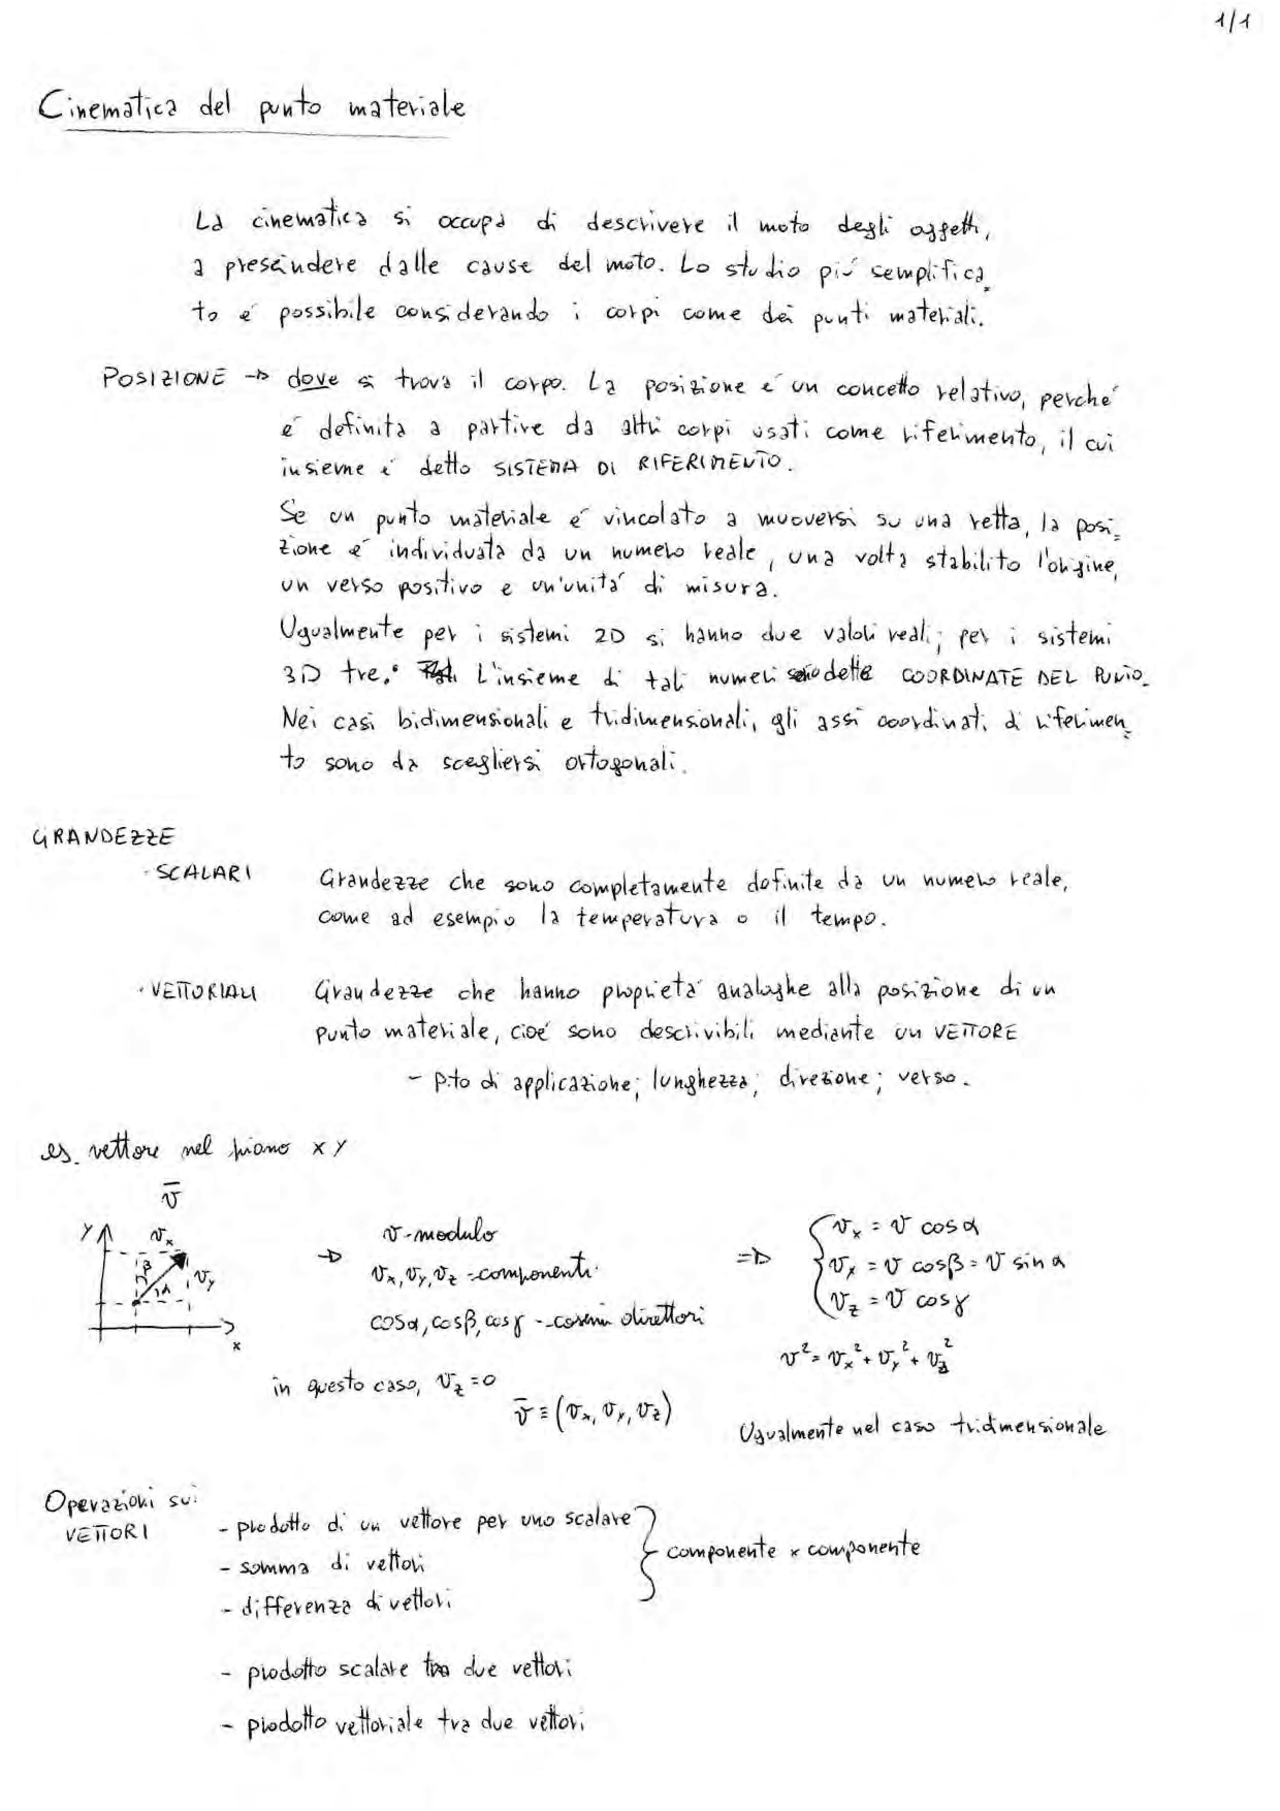 1/1
Cinematica del punto materiale
La cinematica si occupa di descrivere il moto degli oggetti,
a prescindere dalle cause del moto. Lo studio piú semplifica=
to é possibile considerando i corpi come dei punti materiali.
POSIZIONE → dove si trova il corpo. La posizione é un concetto relativo, perché
é definita a partire da altri corpi usati come riferimento, il cui
insieme é detto SISTEMA DI RIFERIMENTO.
Se un punto materiale é vincolato a muoversi su una retta, la posi=
zione é individuata da un numero reale, una volta stabilito l'origine,
un verso positivo e un'unitá di misura.
Ugualmente per i sistemi 2D si hanno due valori reali; per i sistemi
3D tre. L'insieme di tali numeri sono dette COORDINATE DEL PUNTO.
Nei casi bidimensionali e tridimensionali, gli assi coordinati di riferimen=
to sono da scegliersi ortogonali.
GRANDEZZE
· SCALARI Grandezze che sono completamente definite da un numero reale,
come ad esempio la temperatura o il tempo.
· VETTORIALI Grandezze che hanno proprietá analoghe alla posizione di un
punto materiale, cioé sono descrivibili mediante un VETTORE
- p.to di applicazione; lunghezza; direzione; verso.
es. vettore nel piano x y
v̄
y vₓ β v_y α x
→ v - modulo
vₓ, v_y, v_z - componenti
cosα, cosβ, cosγ - coseni direttori
⇒ { vₓ = v cosα
vₓ = v cosβ = v sinα
v_z = v cosγ
v² = vₓ² + v_y² + v_z²
in questo caso, v_z = 0
v̄ ≡ (vₓ, v_y, v_z)
Ugualmente nel caso tridimensionale
Operazioni sui
VETTORI
- prodotto di un vettore per uno scalare
- somma di vettori
- differenza di vettori
} componente x componente
- prodotto scalare tra due vettori
- prodotto vettoriale tra due vettori